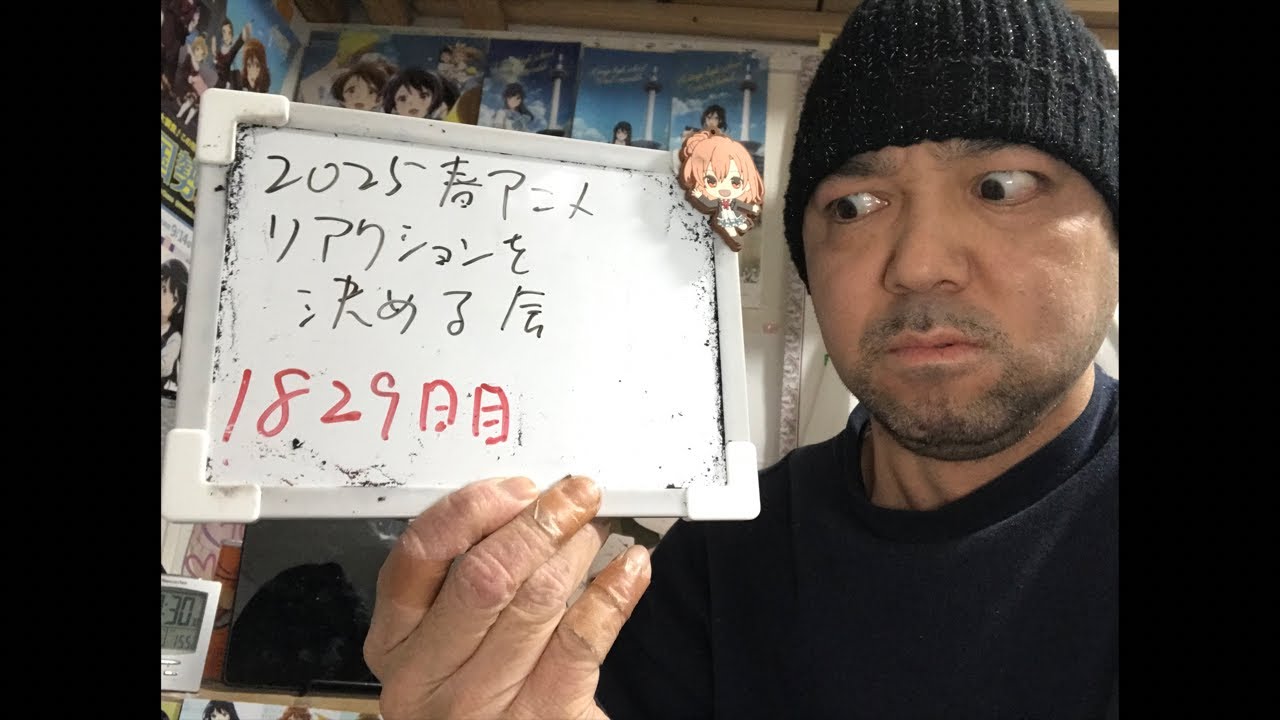 2025春アニメ
リアクションを
決める会
1829日目